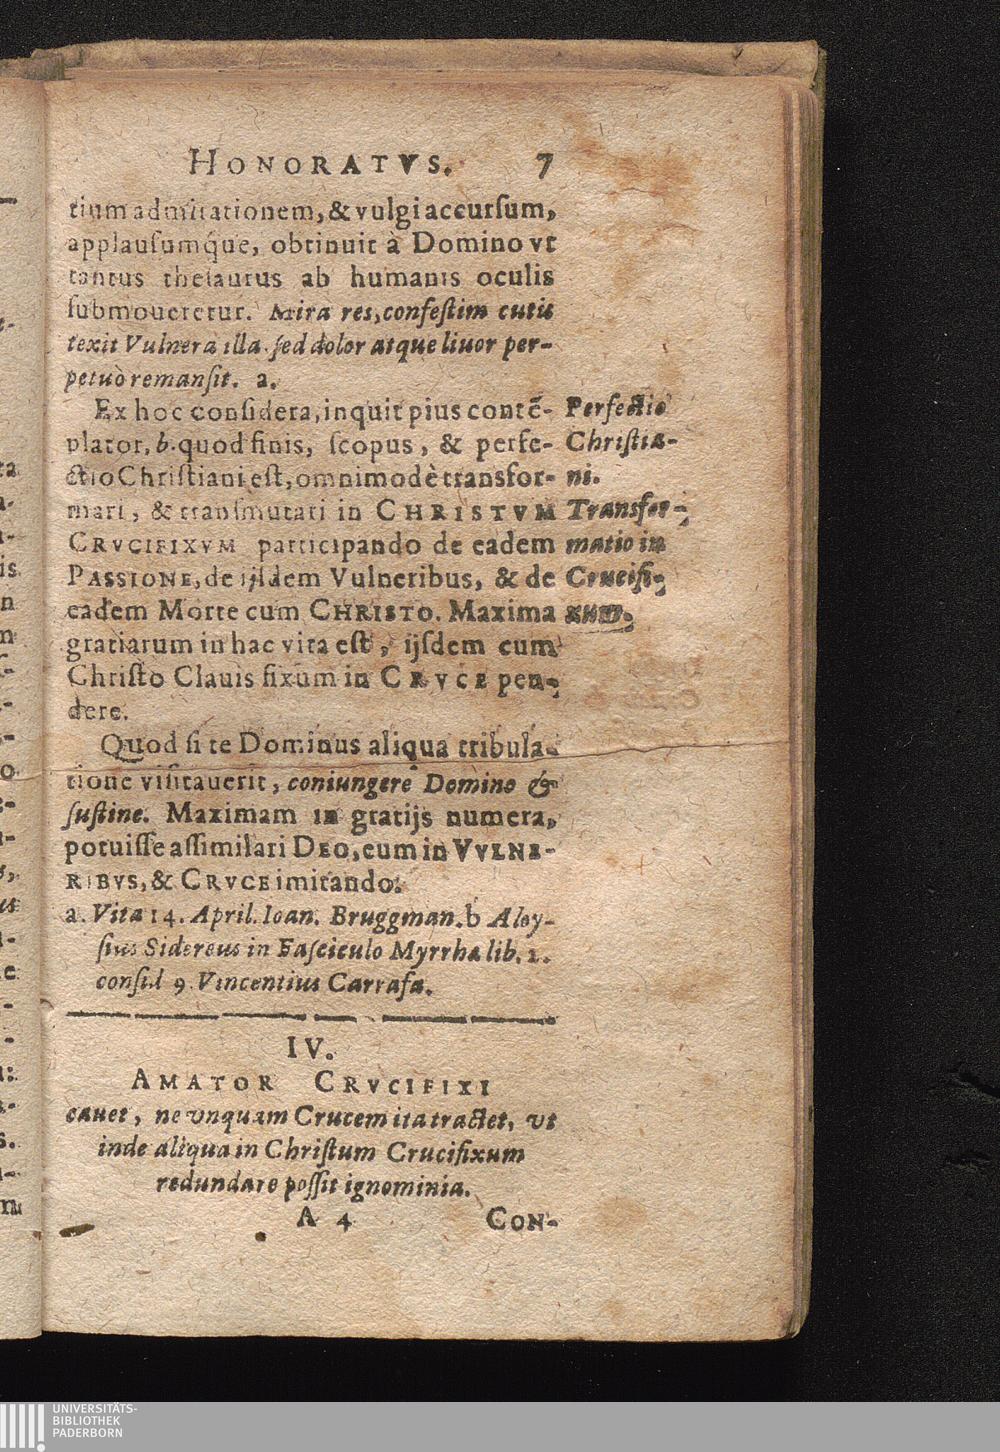 HONORATVS. 7
tium admirationem, & vulgi accursum,
applausumq́ue, obtinuit à Domino vt
tantus thesaurus ab humanis oculis
submoueretur. Mira res, confestim cutis
texit Vulnera illa. sed dolor atque liuor per-
petuò remansit. a.
Ex hoc considera, inquit pius contē-
plator, b. quod finis, scopus, & perfe-
ctio Christiani est, omnimodè transfor-
mari, & transmutari in CHRISTVM
CRVCIFIXVM participando de eadem
PASSIONE, de ijsdem Vulneribus, & de
eadem Morte cum CHRISTO. Maxima
gratiarum in hac vita est, ijsdem cum
Christo Clauis fixum in CRVCE pen-
dere.
Perfectio
Christia-
ni.
Transfor-
matio in
Crucifi-
xum.
Quod si te Dominus aliqua tribula-
tione visitauerit, coniungere Domino &
sustine. Maximam in gratijs numera,
potuisse assimilari DEO, eum in VVLNE-
RIBVS, & CRVCE imitando.
a. Vita 14. April. Ioan. Bruggman. b Aloy-
sius Sidereus in Fasciculo Myrrhæ lib. 1.
consid 9. Vincentius Carrafa.
IV.
AMATOR CRVCIFIXI
cauet, ne vnquam Crucem ita tractet, vt
inde aliqua in Christum Crucifixum
redundare possit ignominia.
A 4 CON-
UNIVERSITÄTS-
BIBLIOTHEK
PADERBORN